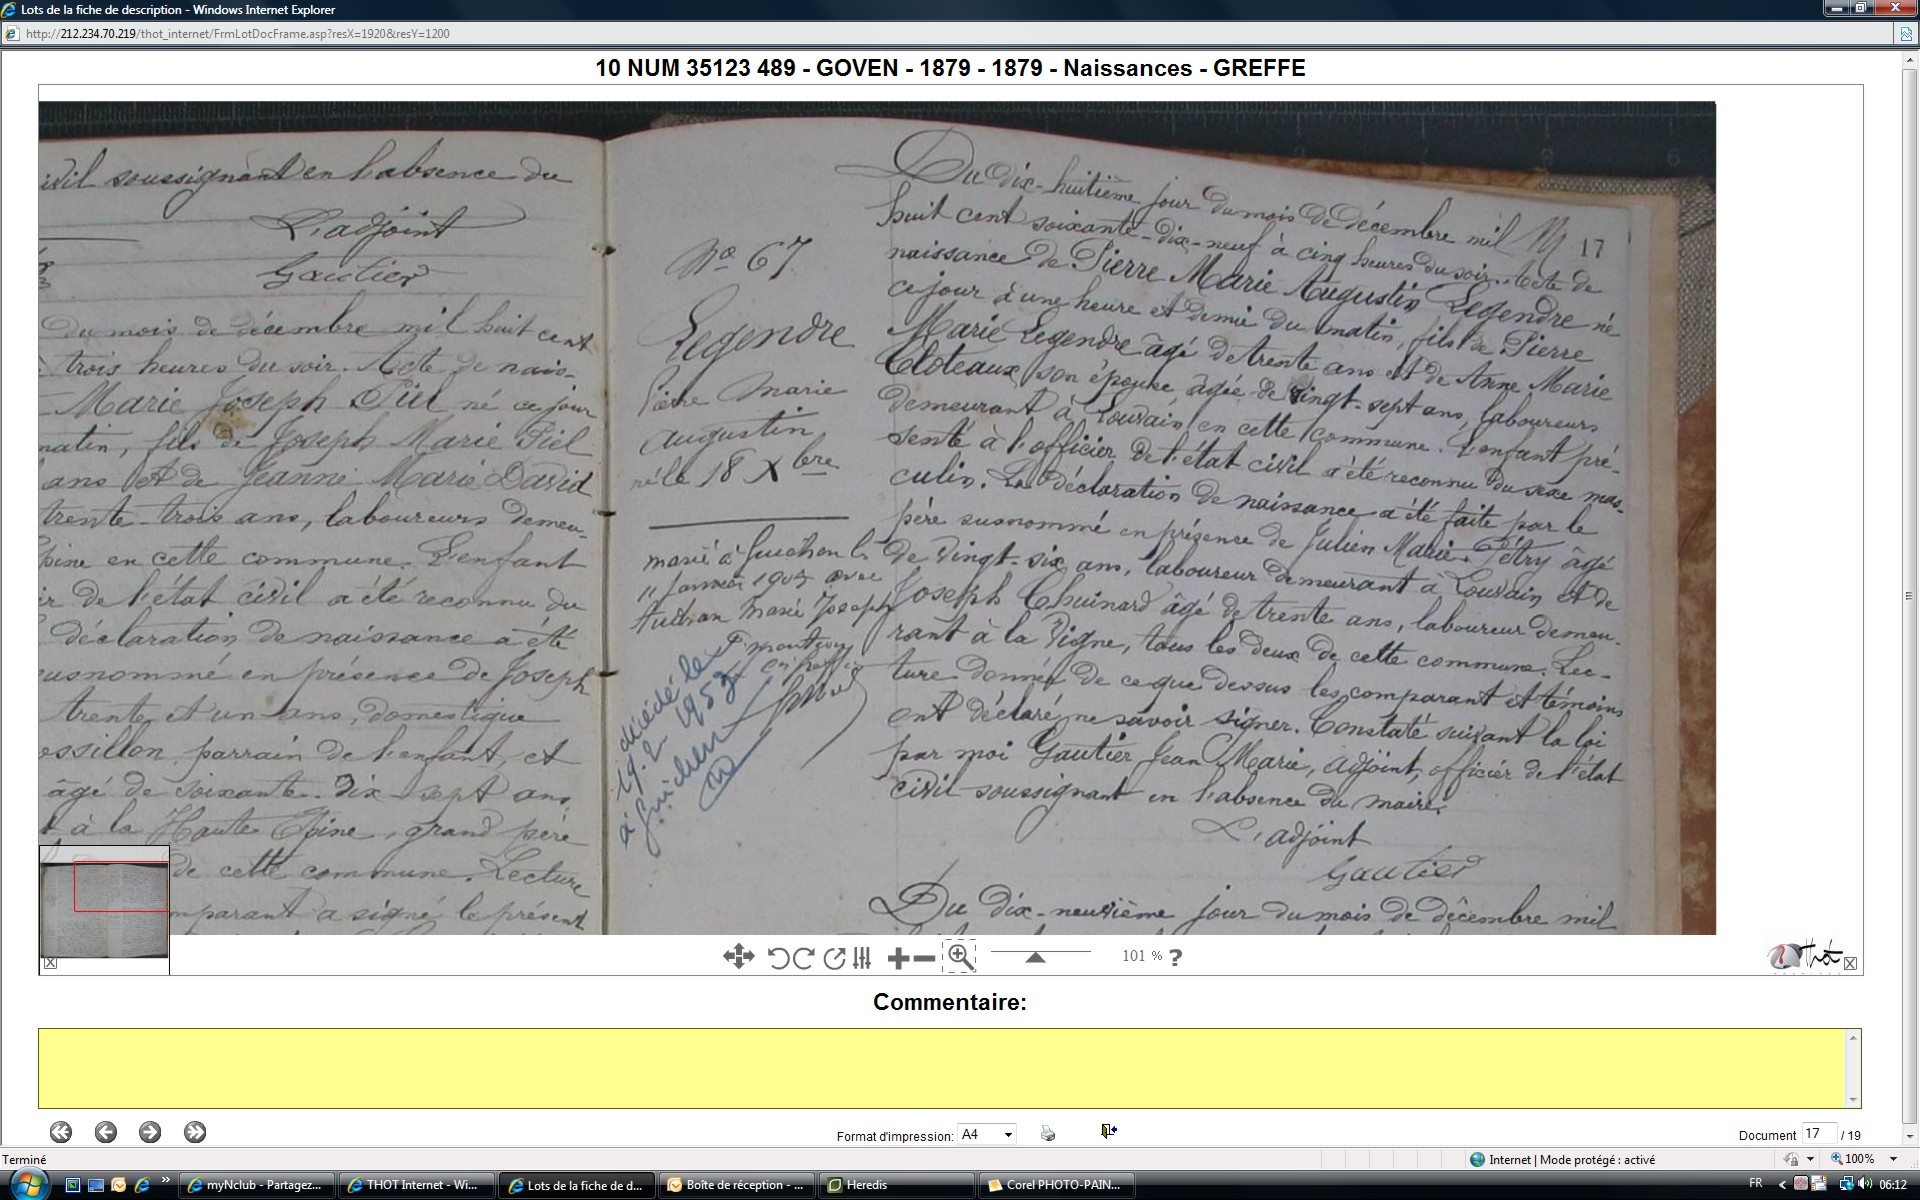 Lots de la fiche de description - Windows Internet Explorer
http://212.234.70.219/thot_internet/FrmLotDocFrame.asp?resX=1920&resY=1200
10 NUM 35123 489 - GOVEN - 1879 - 1879 - Naissances - GREFFE
soussignant en l'absence du
L'adjoint
Gautier
du mois de décembre mil huit cent
trois heures du soir. Acte de nais-
Marie Joseph Piel né ce jour
matin, fils de Joseph Marie Piel
ans et de Jeanne Marie David
trente-trois ans, laboureurs demeu-
en cette commune. L'enfant
de l'état civil a été reconnu du
déclaration de naissance a été
en présence de Joseph
trente et un ans, domestique
parrain de l'enfant, et
âgé de soixante-dix-sept ans
à la Haute Epine, grand père
de cette commune. Lecture
a signé le présent
No 67
Legendre
Pierre Marie
Augustin
né le 18 Xbre
marié à Guichen le
11 Janvier avec
Marie Joseph
décédé le
19-2-1953
à Guichen
17
Du dix-huitième jour du mois de décembre mil
huit cent soixante-dix-neuf à cinq heures du soir. Acte de
naissance de Pierre Marie Augustin Legendre né
ce jour à une heure et demie du matin, fils de Pierre
Marie Legendre âgé de trente ans et de Anne Marie
Cloteaux son épouse, âgée de vingt-sept ans, laboureurs
demeurant à Louvain en cette commune. L'enfant pré-
senté à l'officier de l'état civil a été reconnu du sexe mas-
culin. La déclaration de naissance a été faite par le
père susnommé en présence de Julien Marie Pétry âgé
de vingt-six ans, laboureur demeurant à Louvain et de
Joseph Chuinard âgé de trente ans, laboureur demeu-
rant à la Vigne, tous les deux de cette commune. Lec-
ture donnée de ce que dessus les comparant et témoins
ont déclaré ne savoir signer. Constaté suivant la loi
par moi Gautier Jean Marie, adjoint, officier de l'état
civil soussignant en l'absence du maire.
L'adjoint
Gautier
Du dix-neuvième jour du mois de décembre mil
101 % ?
Thot
Commentaire:
Format d'impression: A4
Document 17 / 19
Terminé
Internet | Mode protégé : activé
100%
myNclub - Partagez...
THOT Internet - Wi...
Lots de la fiche de d...
Boîte de réception - ...
Heredis
Corel PHOTO-PAIN...
FR
06:12